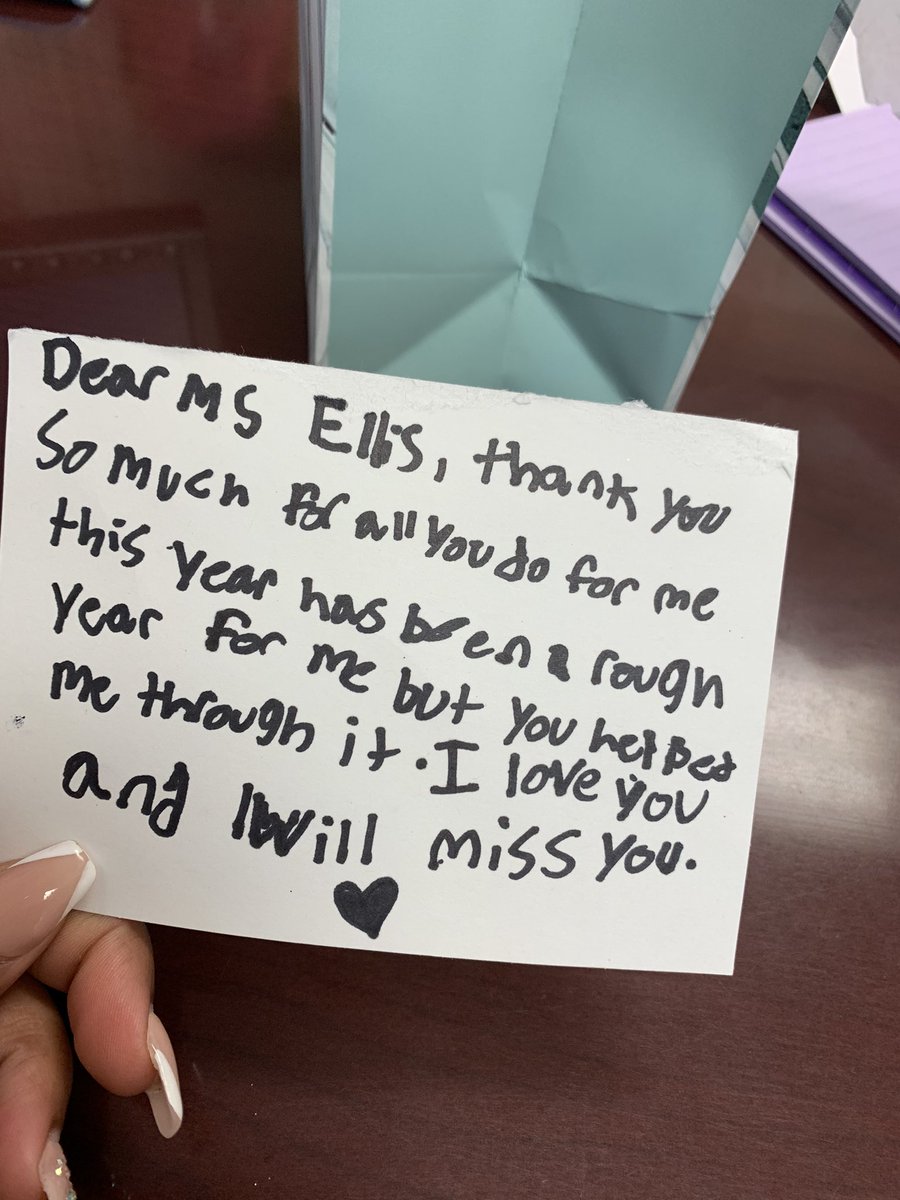 Dear MS Ellis, thank you
So much for all you do for me
this year has been a rough
year for me but you helped
me through it. I love you
and I will miss you.